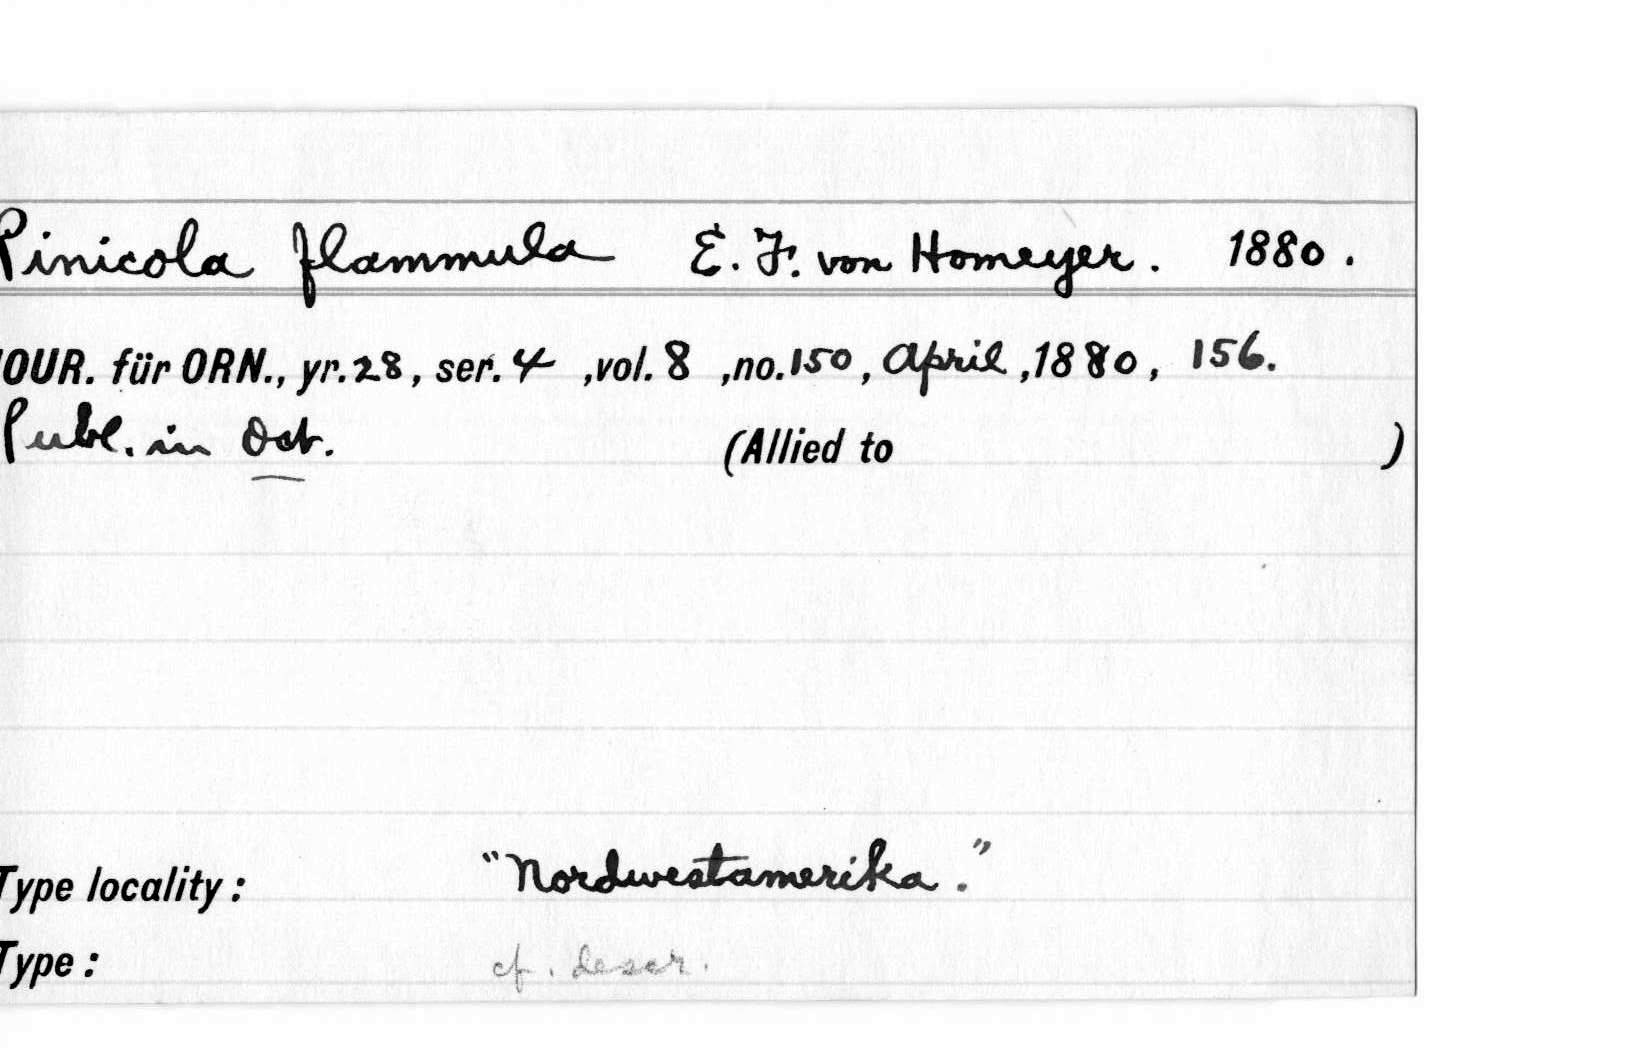 Pinicola flammula E. F. von Homeyer. 1880.
JOUR. für ORN., yr. 28, ser. 4 ,vol. 8 ,no. 150, April ,1880, 156.
Publ. in Oct. (Allied to )
Type locality: "Nordwestamerika."
Type: cf. descr.